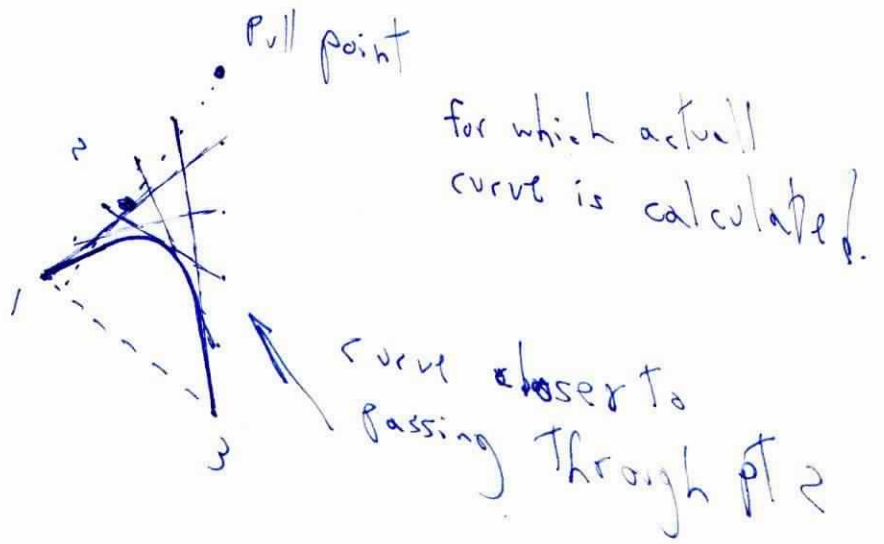 Pull point
for which actuall
curve is calculated.
2
1
3
curve closer to
passing through pt 2